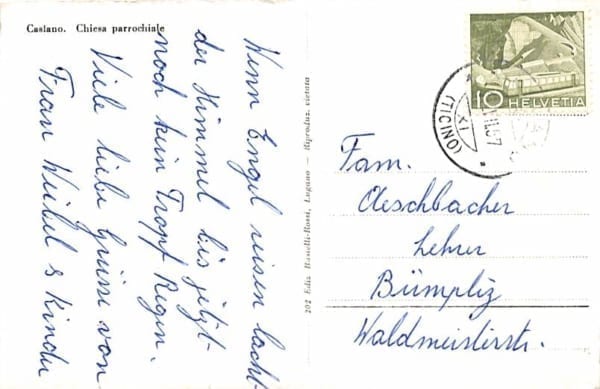 Caslano. Chiesa parrochiale
Wenn Engel reisen lacht
der Himmel bis jetzt
noch kein Tropf Regen.
Viele liebe Grüsse von
Frau Weibel & Kinder
202 Ediz. Rastelli-Rossi, Lugano — Riproduz. vietata
10 HELVETIA
(TICINO)
Fam.
Aeschbacher
Lehrer
Bümpliz
Waldmeisterstr.